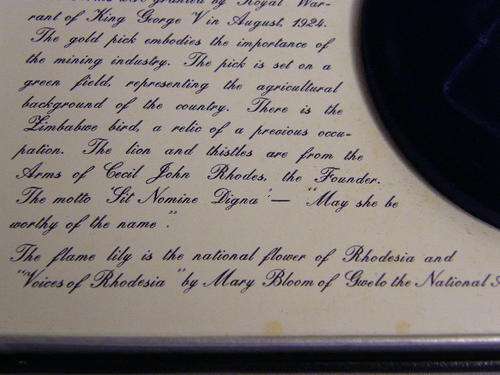 was granted by Royal War-
rant of King George V in August, 1924.
The gold pick embodies the importance of
the mining industry. The pick is set on a
green field, representing the agricultural
background of the country. There is the
Zimbabwe bird, a relic of a previous occu-
pation. The lion and thistles are from the
Arms of Cecil John Rhodes, the Founder.
The motto 'Sit Nomine Digna' — "May she be
worthy of the name".
The flame lily is the national flower of Rhodesia and
"Voices of Rhodesia" by Mary Bloom of Gwelo the National